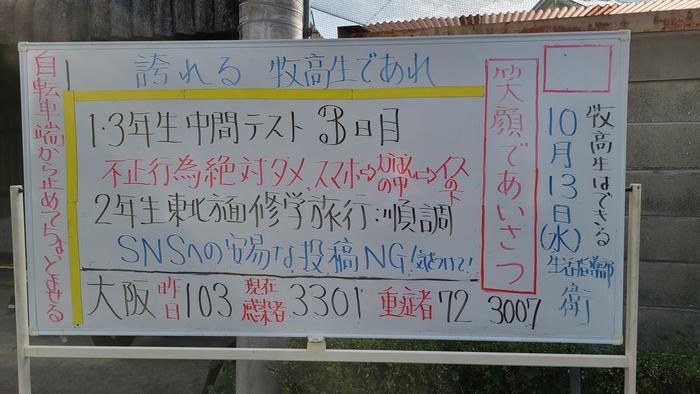 誇れる 牧高生であれ
牧高生はできる
10月13日(水)
生活指導部
衛
笑顔であいさつ
1・3年生中間テスト 3日目
不正行為絶対ダメ、スマホ⇨かばんの中⇨イスの下
2年生東北方面修学旅行:順調
SNSへの安易な投稿NG!気をつけて!
大阪 昨日103 現在感染者3301 重症者72 3007
自転車端から止めて